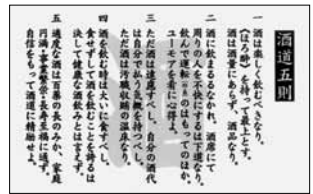 酒道五則
一 酒は楽しく飲むべきなり。
〈ほろ酔〉を持って最上とす。
酒は酒量にあらず、酒品なり。
二 酒に飲まるるなかれ。酒席にて
周りの人を不快にするは下道なり。
飲んで運転するはもってのほか。
ユーモアを肴に心得よ。
三 ただ酒は遠慮すべし。自分の酒代
は自分で払う気概を持つべし。
ただ酒は汚職収賄の温床なり。
四 酒を飲む時は大いに食すべし。
食せずして酒を飲むことを誇るは
決して健康な酒飲みとは言えず。
五 適度な酒は百薬の長のみか、家庭
円満・事業繁栄・長寿至福に通ず。
自信をもって酒道に精励せよ。